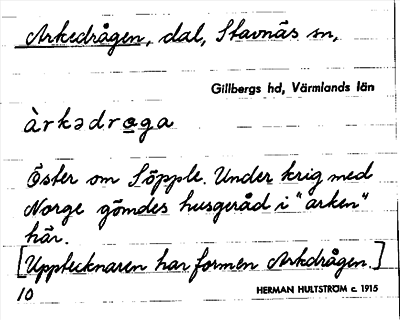 Arkedrågen, dal, Stavnäs sn,
Gillbergs hd, Värmlands län
àrkədrag̲a
Öster om Söpple. Under krig med
Norge gömdes husgeråd i "arken"
här.
[Upptecknaren har formen Arkdrågen.]
10
HERMAN HULTSTRÖM c. 1915